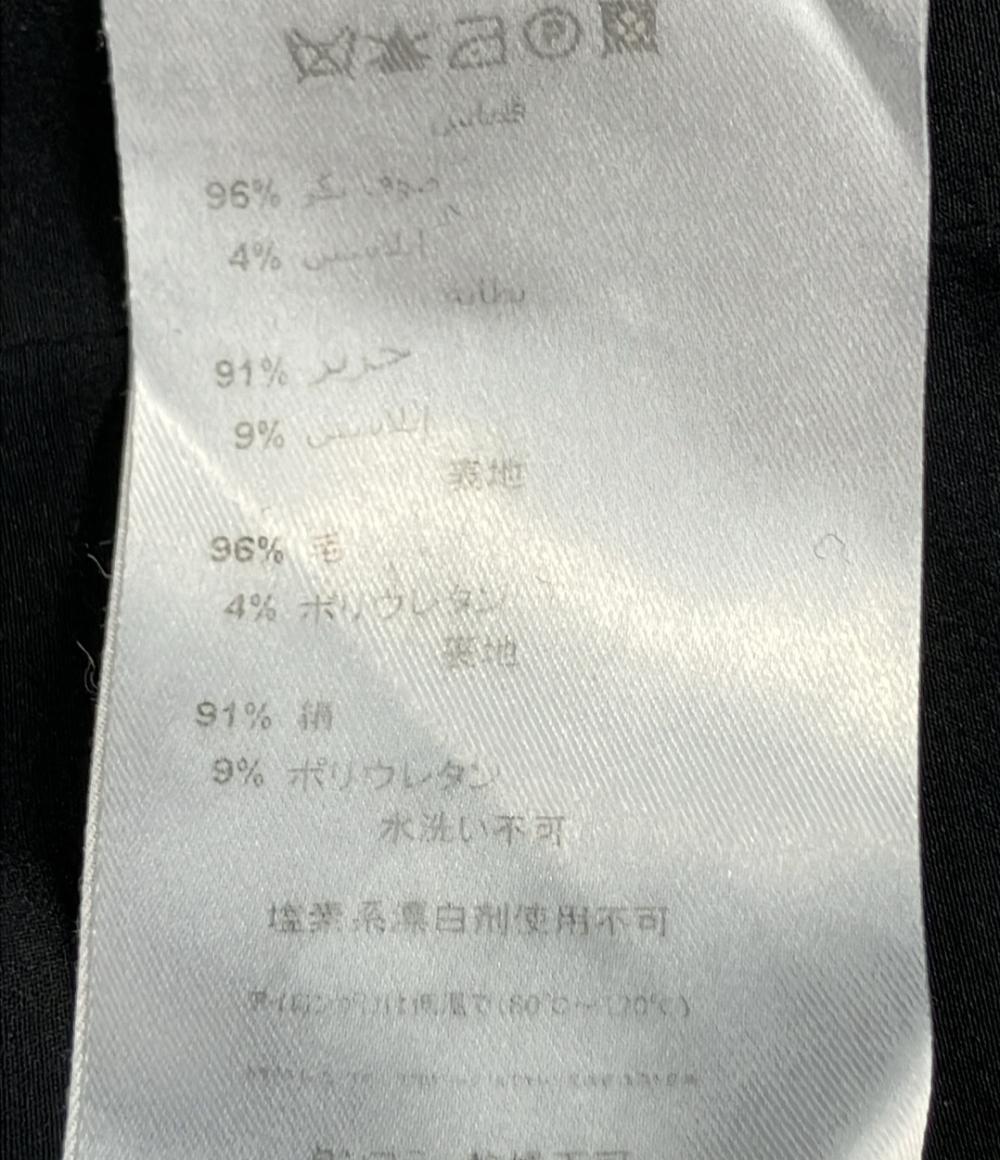 قماش
96% صوف بكر
4% ايلاستين
بطانة
91% حرير
9% ايلاستين
表地
96% 毛
4% ポリウレタン
裏地
91% 絹
9% ポリウレタン
水洗い不可
塩素系漂白剤使用不可
は低温で(80℃～120℃)